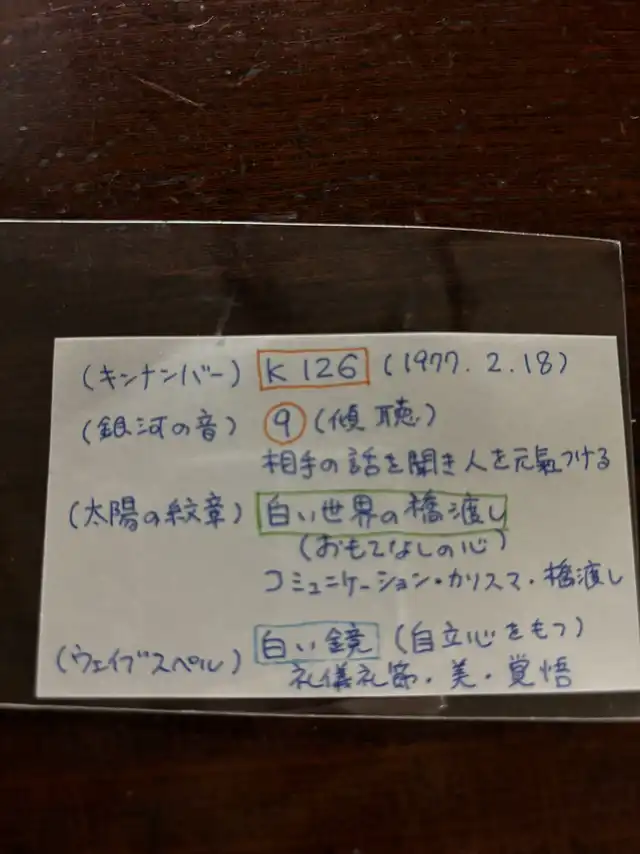 (キンナンバー) K 126 (1977. 2. 18)
(銀河の音) 9 (傾聴)
相手の話を聞き人を元氣づける
(太陽の紋章) 白い世界の橋渡し
(おもてなしの心)
コミュニケーション・カリスマ・橋渡し
(ウェイブスペル) 白い鏡 (自立心をもつ)
礼儀礼節・美・覚悟